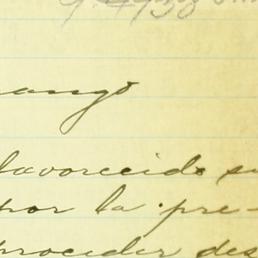 ango
favorecido su
por la pre-
proceder des